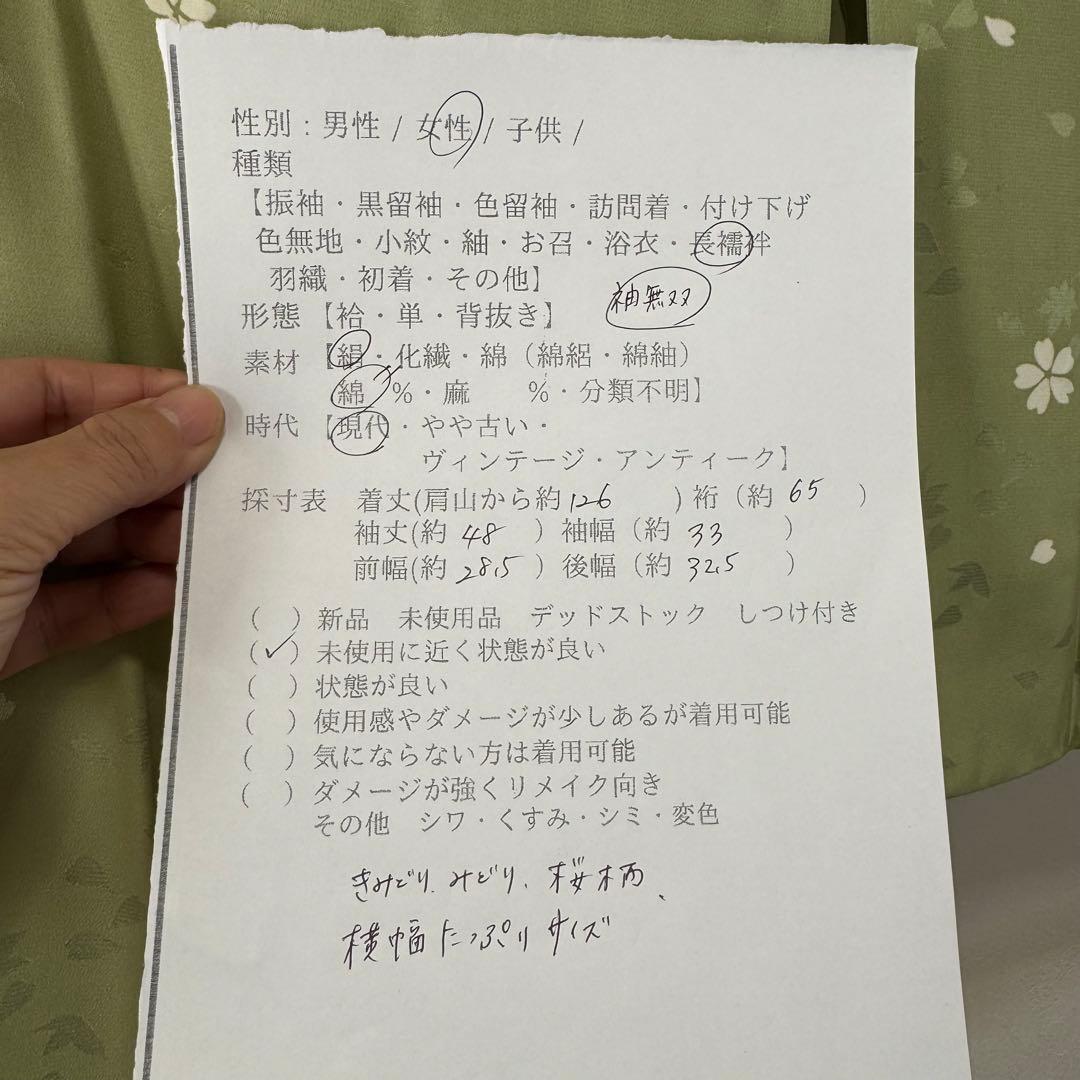 性別：男性 / 女性 / 子供 /
種類
【振袖・黒留袖・色留袖・訪問着・付け下げ
色無地・小紋・紬・お召・浴衣・長襦袢
羽織・初着・その他】
袖無双
形態 【袷・単・背抜き】
素材 【絹・化繊・綿（綿絽・綿紬）
綿 %・麻 %・分類不明】
時代 【現代・やや古い・
ヴィンテージ・アンティーク】
採寸表 着丈(肩山から約126 ) 裄（約 65 ）
袖丈(約 48 ）袖幅（約 33 ）
前幅(約 28.5 ）後幅（約 32.5 ）
( ）新品 未使用品 デッドストック しつけ付き
(✓）未使用に近く状態が良い
( ）状態が良い
( ）使用感やダメージが少しあるが着用可能
( ）気にならない方は着用可能
( ）ダメージが強くリメイク向き
その他 シワ・くすみ・シミ・変色
きみどり、みどり、桜柄、
横幅たっぷりサイズ